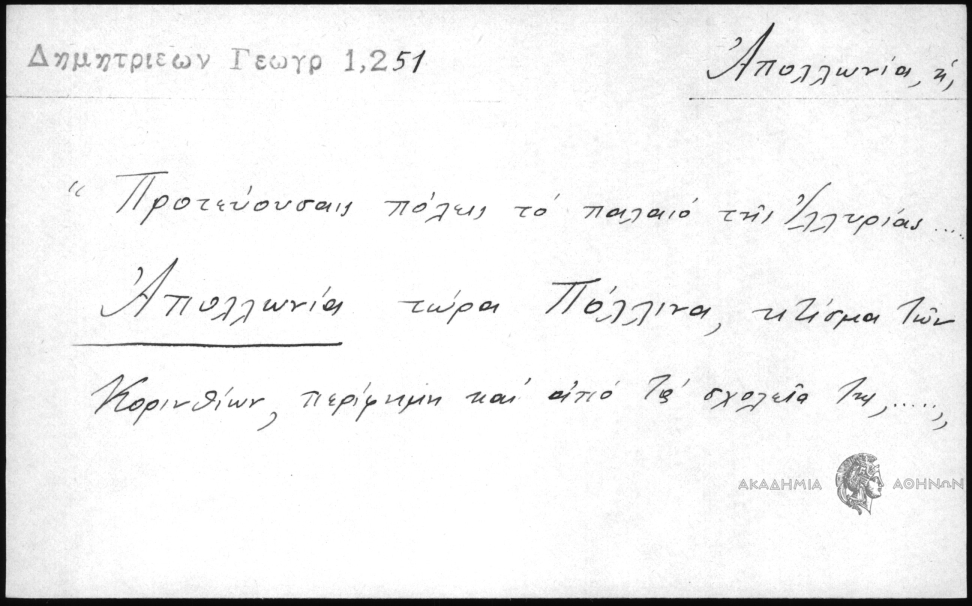 Δημητριεων Γεωγρ 1,251
Ἀπολλωνία, ἡ,
“ Πρωτεύουσαις πόλεις τὸ παλαιὸ τῆς Ἰλλυρίας .....
Ἀπολλωνία τώρα Πόλλινα, κτίσμα τῶν
Κορινθίων, περίφημη καὶ ἀπὸ τὰ σχολεῖα της, .....„
ΑΚΑΔΗΜΙΑ ΑΘΗΝΩΝ